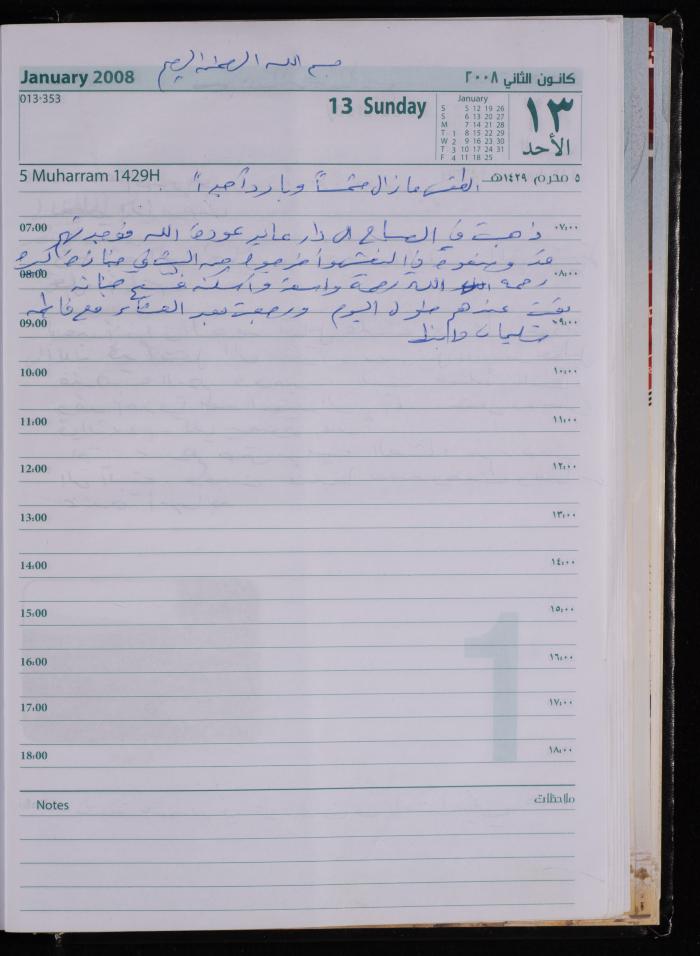 بسم الله الرحمن الرحيم
January 2008
كانون الثاني ٢٠٠٨
013-353
13 Sunday
January
S 5 12 19 26
S 6 13 20 27
M 7 14 21 28
T 1 8 15 22 29
W 2 9 16 23 30
T 3 10 17 24 31
F 4 11 18 25
١٣
الأحد
5 Muharram 1429H
٥ محرم ١٤٢٩هـ
الطقس ما زال مشمساً وبارداً جداً
07:00
٠٧:٠٠
ذهبت في الصباح الى دار عايد عودة الله فوجدتهم
قد
08:00
٠٨:٠٠
رحمه الله رحمة واسعة وأسكنه فسيح جنانه
بقيت عندهم طول اليوم ورجعت بعد العشاء مع فاطمة
09:00
٠٩:٠٠
سليمان
10:00
١٠:٠٠
11:00
١١:٠٠
12:00
١٢:٠٠
13:00
١٣:٠٠
14:00
١٤:٠٠
15:00
١٥:٠٠
16:00
١٦:٠٠
17:00
١٧:٠٠
18:00
١٨:٠٠
1
Notes
ملاحظات